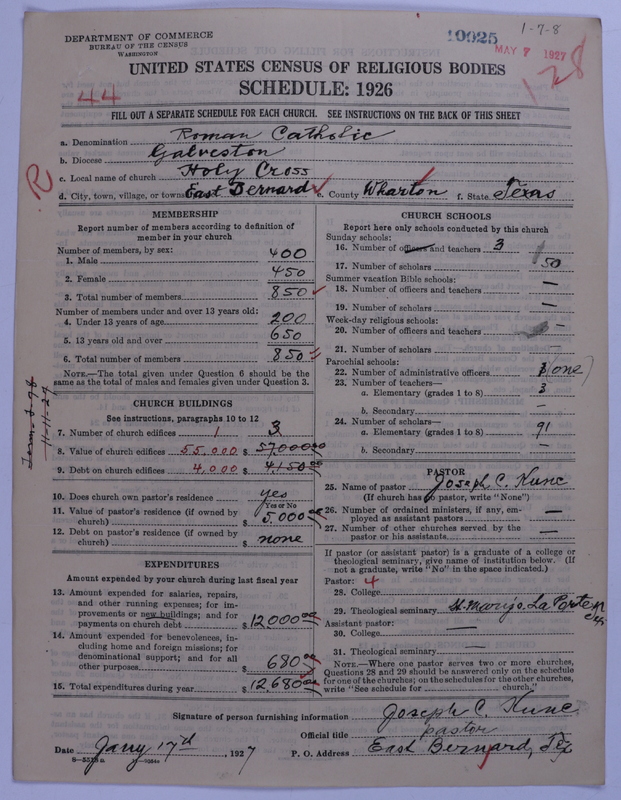 1-7-8
DEPARTMENT OF COMMERCE
BUREAU OF THE CENSUS
WASHINGTON
10025
MAY 7 1927
128
44
UNITED STATES CENSUS OF RELIGIOUS BODIES
SCHEDULE: 1926
FILL OUT A SEPARATE SCHEDULE FOR EACH CHURCH. SEE INSTRUCTIONS ON THE BACK OF THIS SHEET
a. Denomination Roman Catholic
b. Diocese Galveston
c. Local name of church Holy Cross
R
d. City, town, village, or town East Bernard e. County Wharton f. State Texas
MEMBERSHIP
Report number of members according to definition of
member in your church
Number of members, by sex:
1. Male 400
2. Female 450
3. Total number of members 850
Number of members under and over 13 years old:
4. Under 13 years of age 200
5. 13 years old and over 650
6. Total number of members 850
NOTE.—The total given under Question 6 should be the
same as the total of males and females given under Question 3.
CHURCH BUILDINGS
See instructions, paragraphs 10 to 12
7. Number of church edifices 1 3
8. Value of church edifices 55,000 $ 57,000 00
9. Debt on church edifices 4,000 $ 4,150 00
10. Does church own pastor's residence yes
Yes or No
11. Value of pastor's residence (if owned by
church) $ 5,000 00
12. Debt on pastor's residence (if owned by
church) $ none
11-11-29
EXPENDITURES
Amount expended by your church during last fiscal year
13. Amount expended for salaries, repairs,
and other running expenses; for im-
provements or new buildings; and for
payments on church debt $ 12,000 00
14. Amount expended for benevolences, in-
cluding home and foreign missions; for
denominational support; and for all
other purposes $ 680 00
15. Total expenditures during year $ 12,680 00
CHURCH SCHOOLS
Report here only schools conducted by this church
Sunday schools:
16. Number of officers and teachers 3
17. Number of scholars 50
Summer vacation Bible schools:
18. Number of officers and teachers —
19. Number of scholars —
Week-day religious schools:
20. Number of officers and teachers —
21. Number of scholars —
Parochial schools:
22. Number of administrative officers 1 (one)
23. Number of teachers—
a. Elementary (grades 1 to 8) 3
b. Secondary —
24. Number of scholars—
a. Elementary (grades 1 to 8) 91
b. Secondary —
PASTOR
25. Name of pastor Joseph C. Kunc
(If church has no pastor, write "None")
26. Number of ordained ministers, if any, em-
ployed as assistant pastors —
27. Number of other churches served by the
pastor or his assistants —
If pastor (or assistant pastor) is a graduate of a college or
theological seminary, give name of institution below. (If
not a graduate, write "No" in the space indicated.)
Pastor: 4
28. College
29. Theological seminary St. Marys, La Porte
Assistant pastor:
30. College —
31. Theological seminary —
NOTE.—Where one pastor serves two or more churches,
Questions 28 and 29 should be answered only on the schedule
for one of the churches; on the schedules for the other churches,
write "See schedule for church."
Signature of person furnishing information Joseph C. Kunc
Official title pastor
Date Jany 17th, 1927 P. O. Address East Bernard, Tex
8—5518a